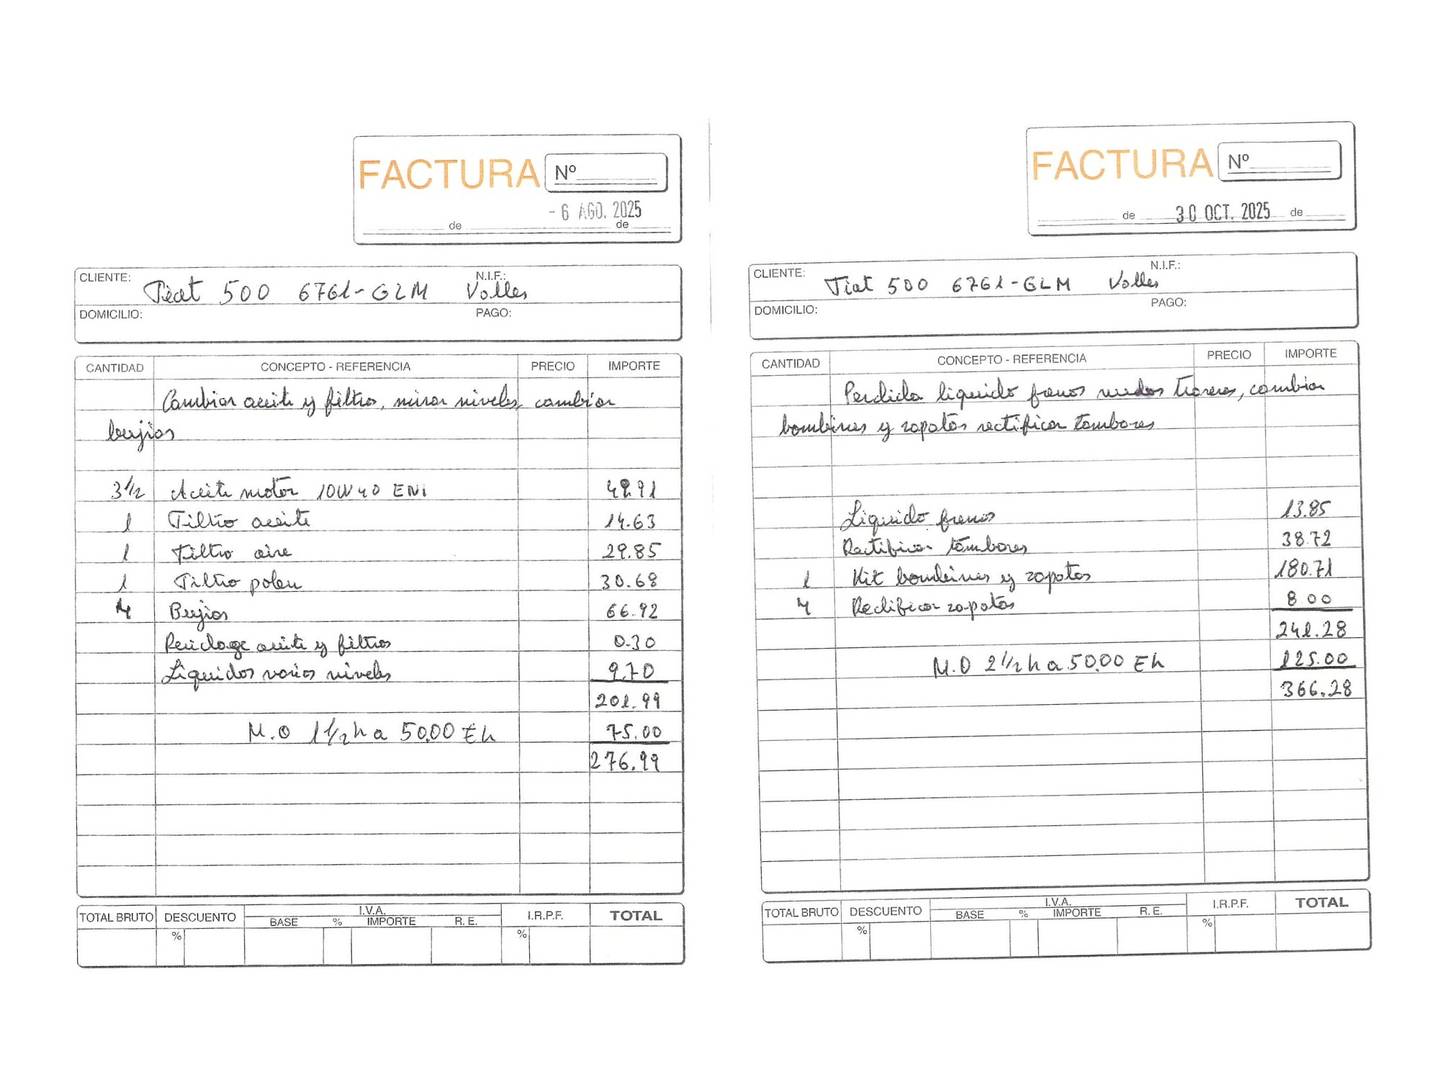 FACTURA Nº
- 6 AGO. 2025
de de
CLIENTE: Fiat 500 6761-GLM N.I.F.: Valles
DOMICILIO: PAGO:
CANTIDAD CONCEPTO - REFERENCIA PRECIO IMPORTE
Cambiar aceite y filtros, mirar niveles, cambiar
bujias
3 1/2 Aceite motor 10W40 ENI 49.91
1 Filtro aceite 14.63
1 Filtro aire 29.85
1 Filtro polen 30.68
4 Bujias 66.92
Reciclage aceite y filtros 0.30
Liquidos varios niveles 9.70
201.99
M.O 1 1/2 h a 50.00 €h 75.00
276.99
TOTAL BRUTO DESCUENTO I.V.A. I.R.P.F. TOTAL
BASE % IMPORTE R. E.
% %
FACTURA Nº
de 30 OCT. 2025 de
CLIENTE: Fiat 500 6761-GLM N.I.F.: Valles
DOMICILIO: PAGO:
CANTIDAD CONCEPTO - REFERENCIA PRECIO IMPORTE
Perdida liquido frenos ruedas traseras, cambiar
bombines y zapatas rectificar tambores
Liquido frenos 13.85
Rectificar tambores 38.72
1 Kit bombines y zapatas 180.71
4 Rectificar zapatas 8.00
241.28
M.O 2 1/2 h a 50.00 €h 125.00
366.28
TOTAL BRUTO DESCUENTO I.V.A. I.R.P.F. TOTAL
BASE % IMPORTE R. E.
% %